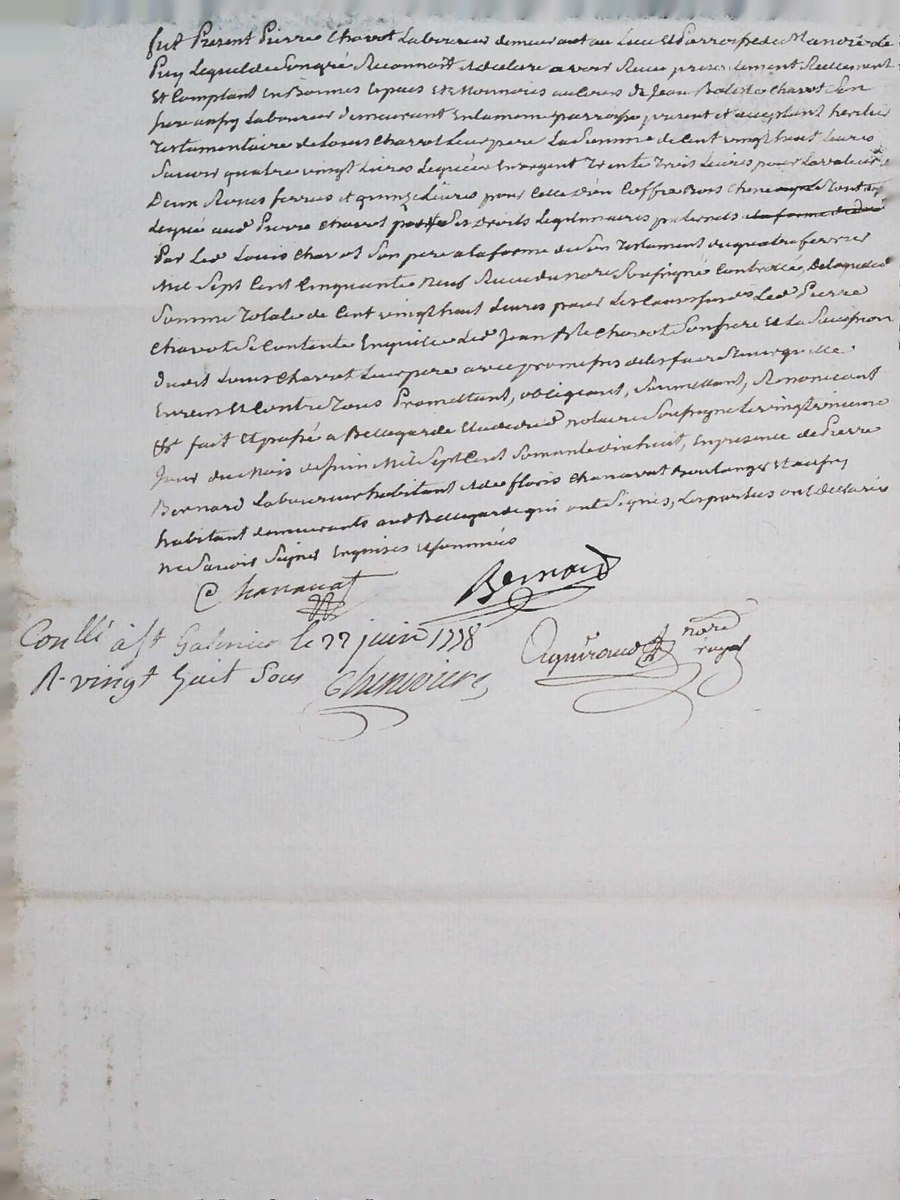 fut Present Pierre Chavot Laboureur demeurant au Lieu Et Parroisse de Manoré Le
Puy Lequel de Son gré Reconnoit et declare avoir Receu presentement Reellement
Et Comptant En Bonnes Especes Et Monnoies au Cours de Jean Batiste Chavot Son
frere aussy Laboureur demeurant En la meme parroisse present et acceptant heritier
Testamentaire de Louis Chavot Leur pere La Somme de Cent vingt huit Livres
Savoir quatre vingt Livres Leguée En argent Trente Trois Livres pour La valeur
Deux Roues ferrées et quinze Livres pour Celle d'un Coffre Bois Chene Tout
Legué aud Pierre Chavot pour Ses Droits Legitimaires paternels a la forme
Par Led Louis Chavot Son pere a la forme de Son Testament du quatre fevrier
Mil Sept Cent Cinquante neuf Receu du nore Soussigné Controllé, De laquelle
Somme Totale de Cent vingt huit Livres pour Les Causes Led Pierre
Chavot Se Contente En quitte Led Jean Bte Chavot Son frere Et La Succession
Dudit Louis Chavot Leur pere avec promesse de Les faire Tenir quitte
Envers Et Contre Tous Promettant, obligeant, Soumettant, Renoncant
&c fait Et passé a Bellegarde Etude du notaire Soussigné Le vingt
Jour du Mois de Juin Mil Sept Cent Soixante dix huit, En presence de Pierre
Bernard Laboureur habitant et de floris Chanavat Boulanger Et aussy
habitant demeurants aud Bellegarde qui ont Signés, Les parties ont declaré
ne Savoir Signer Enquises et Sommées
Chanavat Bernard
Conllé à St Galmier le 22 juin 1778 nore
R. vingt huit Sous royal